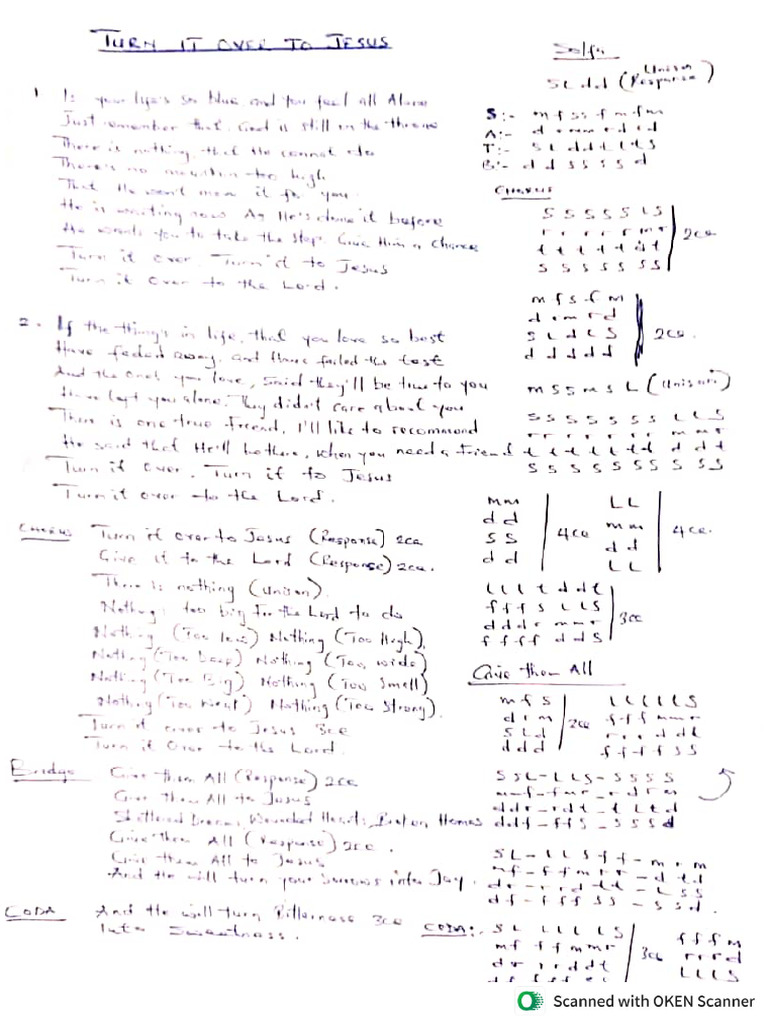 TURN IT OVER TO JESUS
1 Is your life's so blue, and you feel all Alone
Just remember that, God is still on the throne
There is nothing, that He cannot do
There's no mountain too high
That He won't move it for you.
He is waiting now As He's done it before
He wants you to take the step, Give Him a chance
Turn it over, Turn it to Jesus
Turn it over to the Lord.
2. If the things in life, that you love so best
Have faded away, and Have failed the test
And the ones you love, said they'll be true to you
Have left you alone, They didn't care about you
There is one true Friend, I'll like to recommend
He said that He'll be there, when you need a friend
Turn it over, Turn it to Jesus
Turn it over to the Lord.
CHORUS Turn it over to Jesus (Response) 2ce
Give it to the Lord (Response) 2ce.
There is nothing (Unison)
Nothing too big for the Lord to do
Nothing (Too low) Nothing (Too High),
Nothing (Too Deep) Nothing (Too wide)
Nothing (Too Big) Nothing (Too Small)
Nothing (Too Weak) Nothing (Too Strong).
Turn it over to Jesus 3ce
Turn it Over to the Lord.
Bridge Give them All (Response) 2ce
Give them All to Jesus
Shattered Dreams, Wounded Hearts, Broken Homes
Give them All (Response) 2ce.
Give them All to Jesus
And He will turn your sorrows into Joy.
CODA And He will turn Bitterness 3ce
Into Sweetness.
Solfa
S L d d (Unison Response)
S:- m f s s f m f m
A:-
T:-
B:- d d s s s s d
CHORUS
s s s s s L s
s s s s s s s
2ce
m f s f m
d d d d d
2ce.
m s s m s L (Unison)
s s s s s s s L L s
s s s s s s s s s s
m m
d d
s s
d d
4ce
L L
m m
d d
L L
4ce.
L L L t d d t
f f f s L L s
d d d r m m r
f f f f d d s
3ce
Give them All
m f s
d r m
s L d
d d d
2ce
L L L L L s
f f f m m r
r r r d d t
f f f f s s
s s L - L L s - s s s s
m - f - f m r - r d r m
d d r - r d t - t L t d
d d f - f f s - s s s d
CODA:-
s L L L L L s
m f f f m m r
d r r r d d t
3ce
f f f m
r r r d
L L L s
Scanned with OKEN Scanner